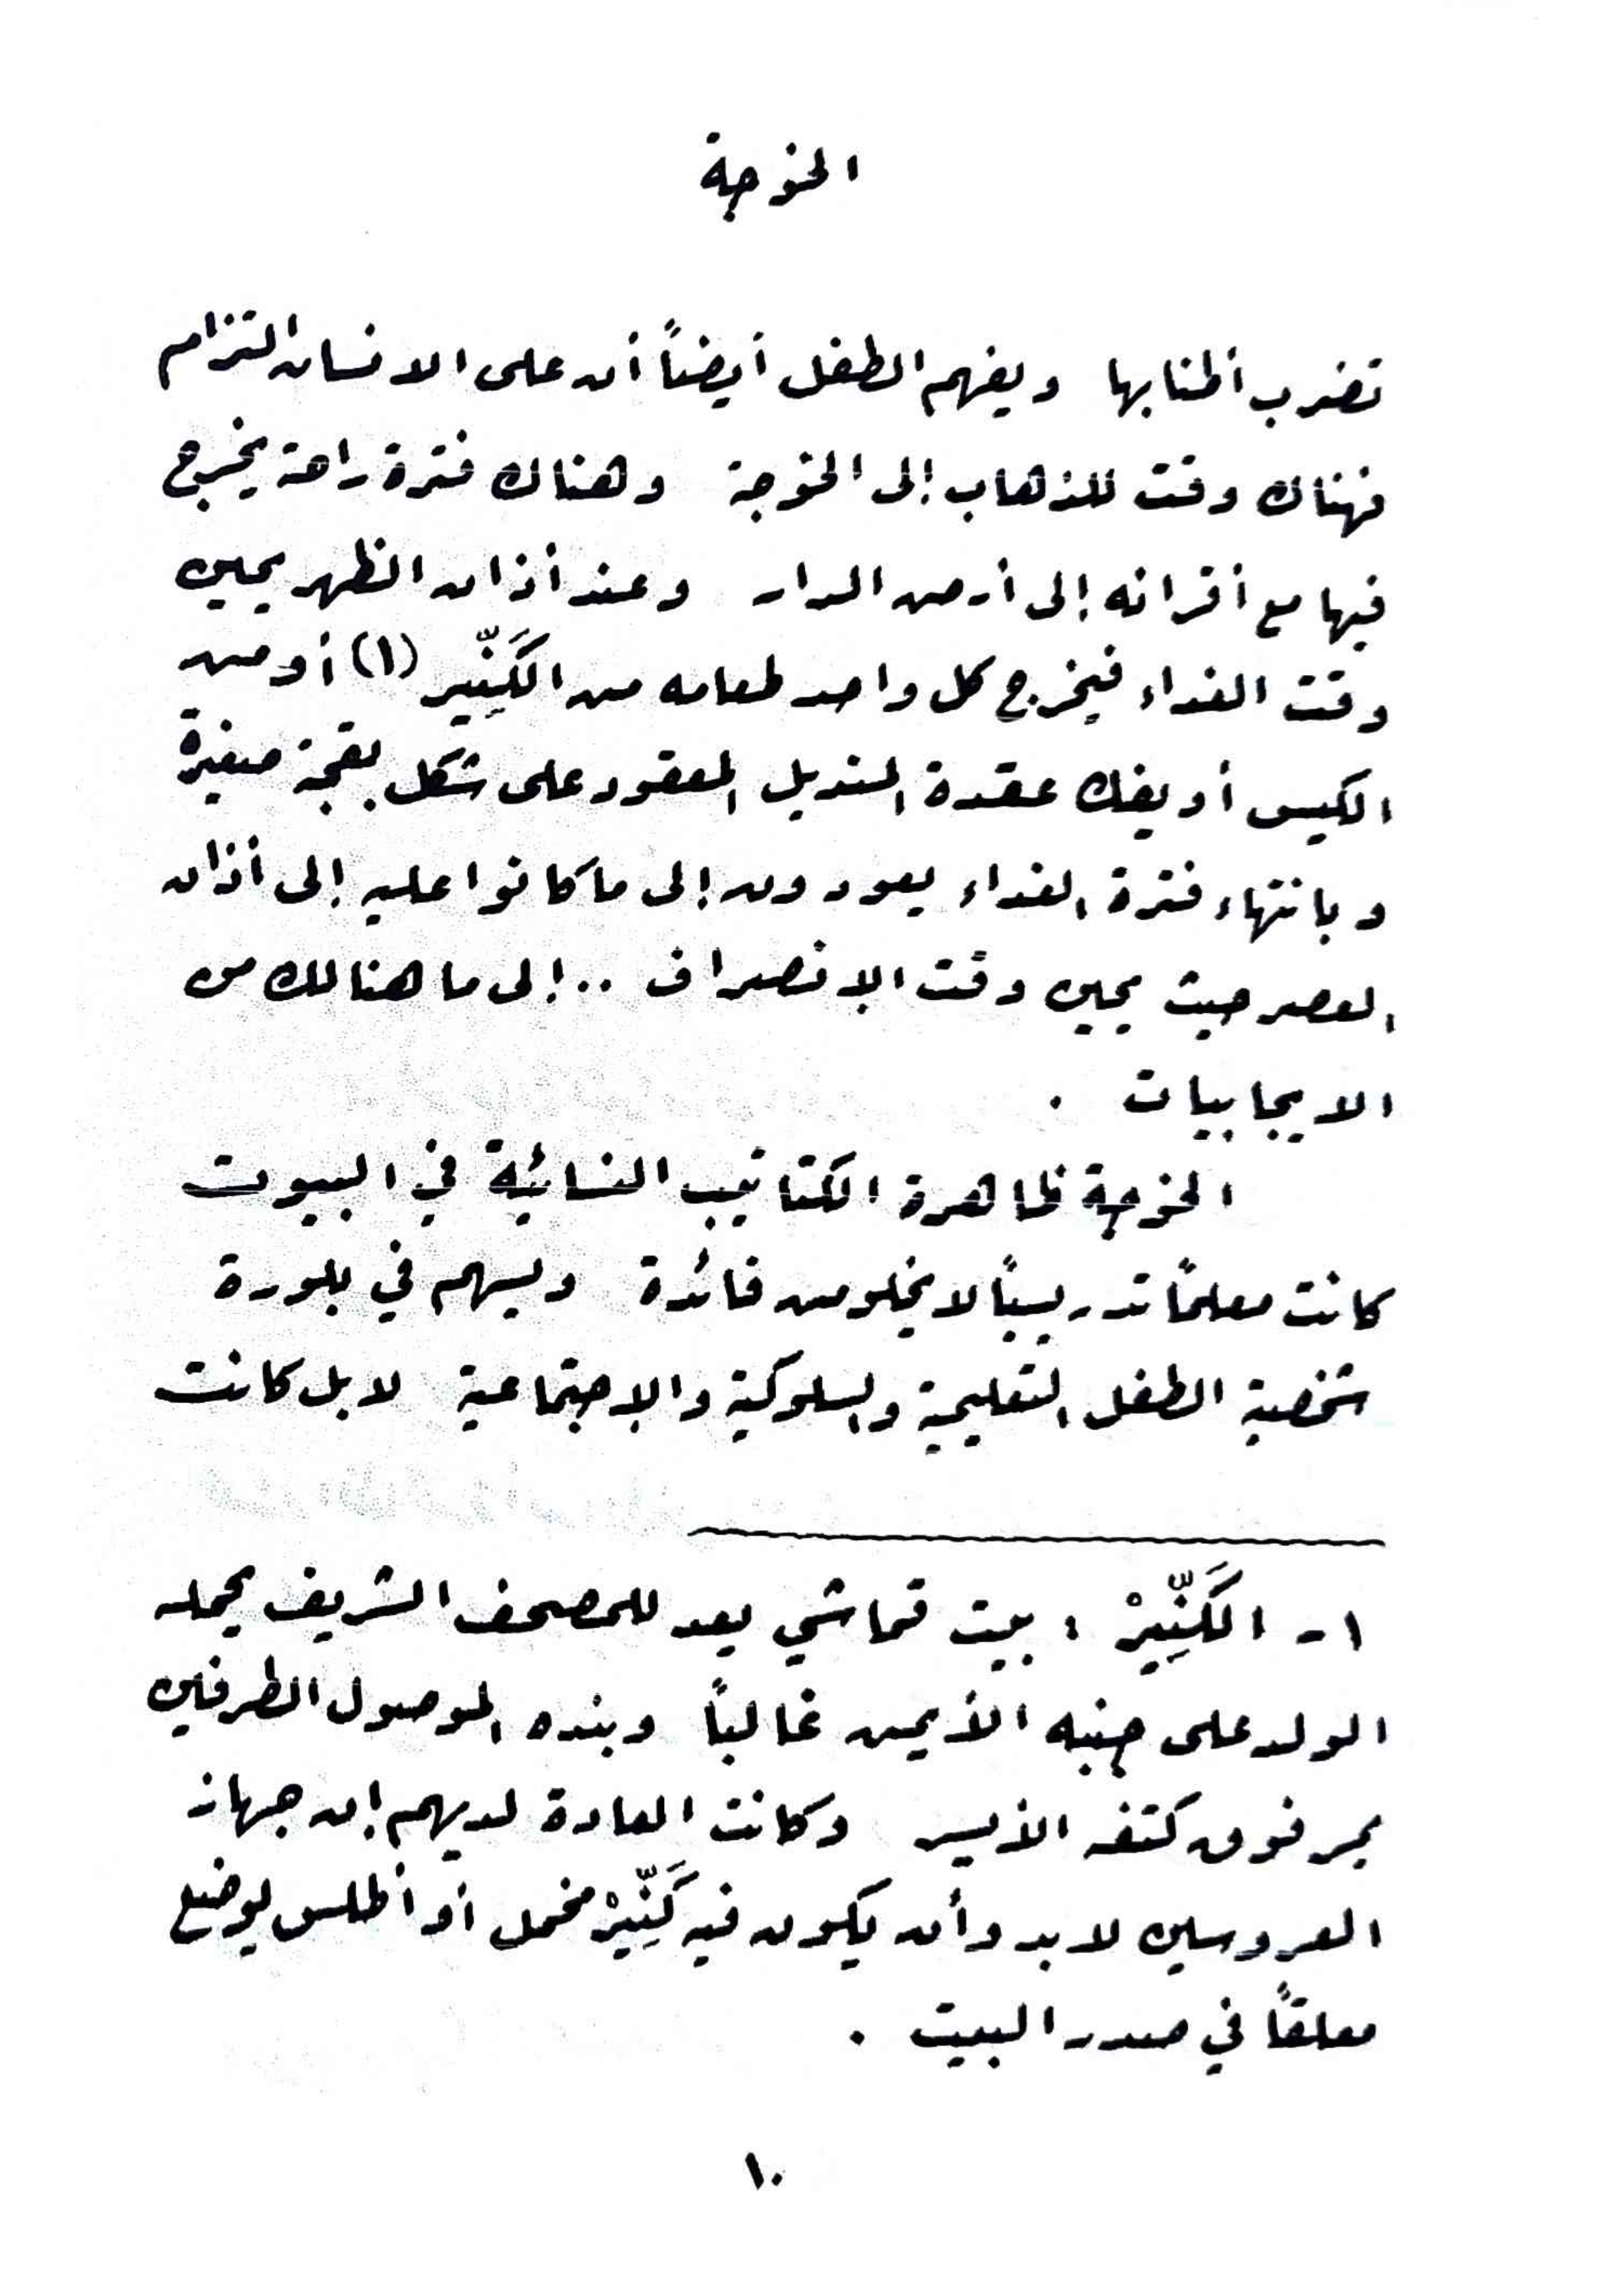 الخوجة
تضرب أطنابها ويفهم الطفل أيضاً أن على الانسان التزام
فهناك وقت للذهاب إلى الخوجة وهناك فترة راحة يخرج
فيها مع أقرانه إلى أرض الدار وعند أذان الظهر يحين
وقت الغداء فيخرج كل واحد طعامه من الكَنِّير (١) أو من
الكيس أو يفك عقدة المنديل المعقود على شكل بقجة صغيرة
وبانتهاء فترة الغداء يعودون إلى ما كانوا عليه إلى أذان
العصر حيث يحين وقت الإنصراف .. إلى ما هنالك من
الايجابيات .
الخوجة ظاهرة الكتاتيب النسائية في البيوت
كانت معلماً تدريسياً لا يخلو من فائدة ويسهم في بلورة
شخصية الطفل التعليمية والسلوكية والإجتماعية لا بل كانت
١ - الكَنِّيرْ : بيت قماشي يعد للمصحف الشريف يحمله
الولد على جنبه الأيمن غالباً وبنده الموصول الطرفين
يمر فوق كتفه الأيسر وكانت العادة لديهم إن جهاز
العروسين لابد وأن يكون فيه كَنِّيرْ مخمل أو أطلس يوضع
معلقاً في صدر البيت .
١٠